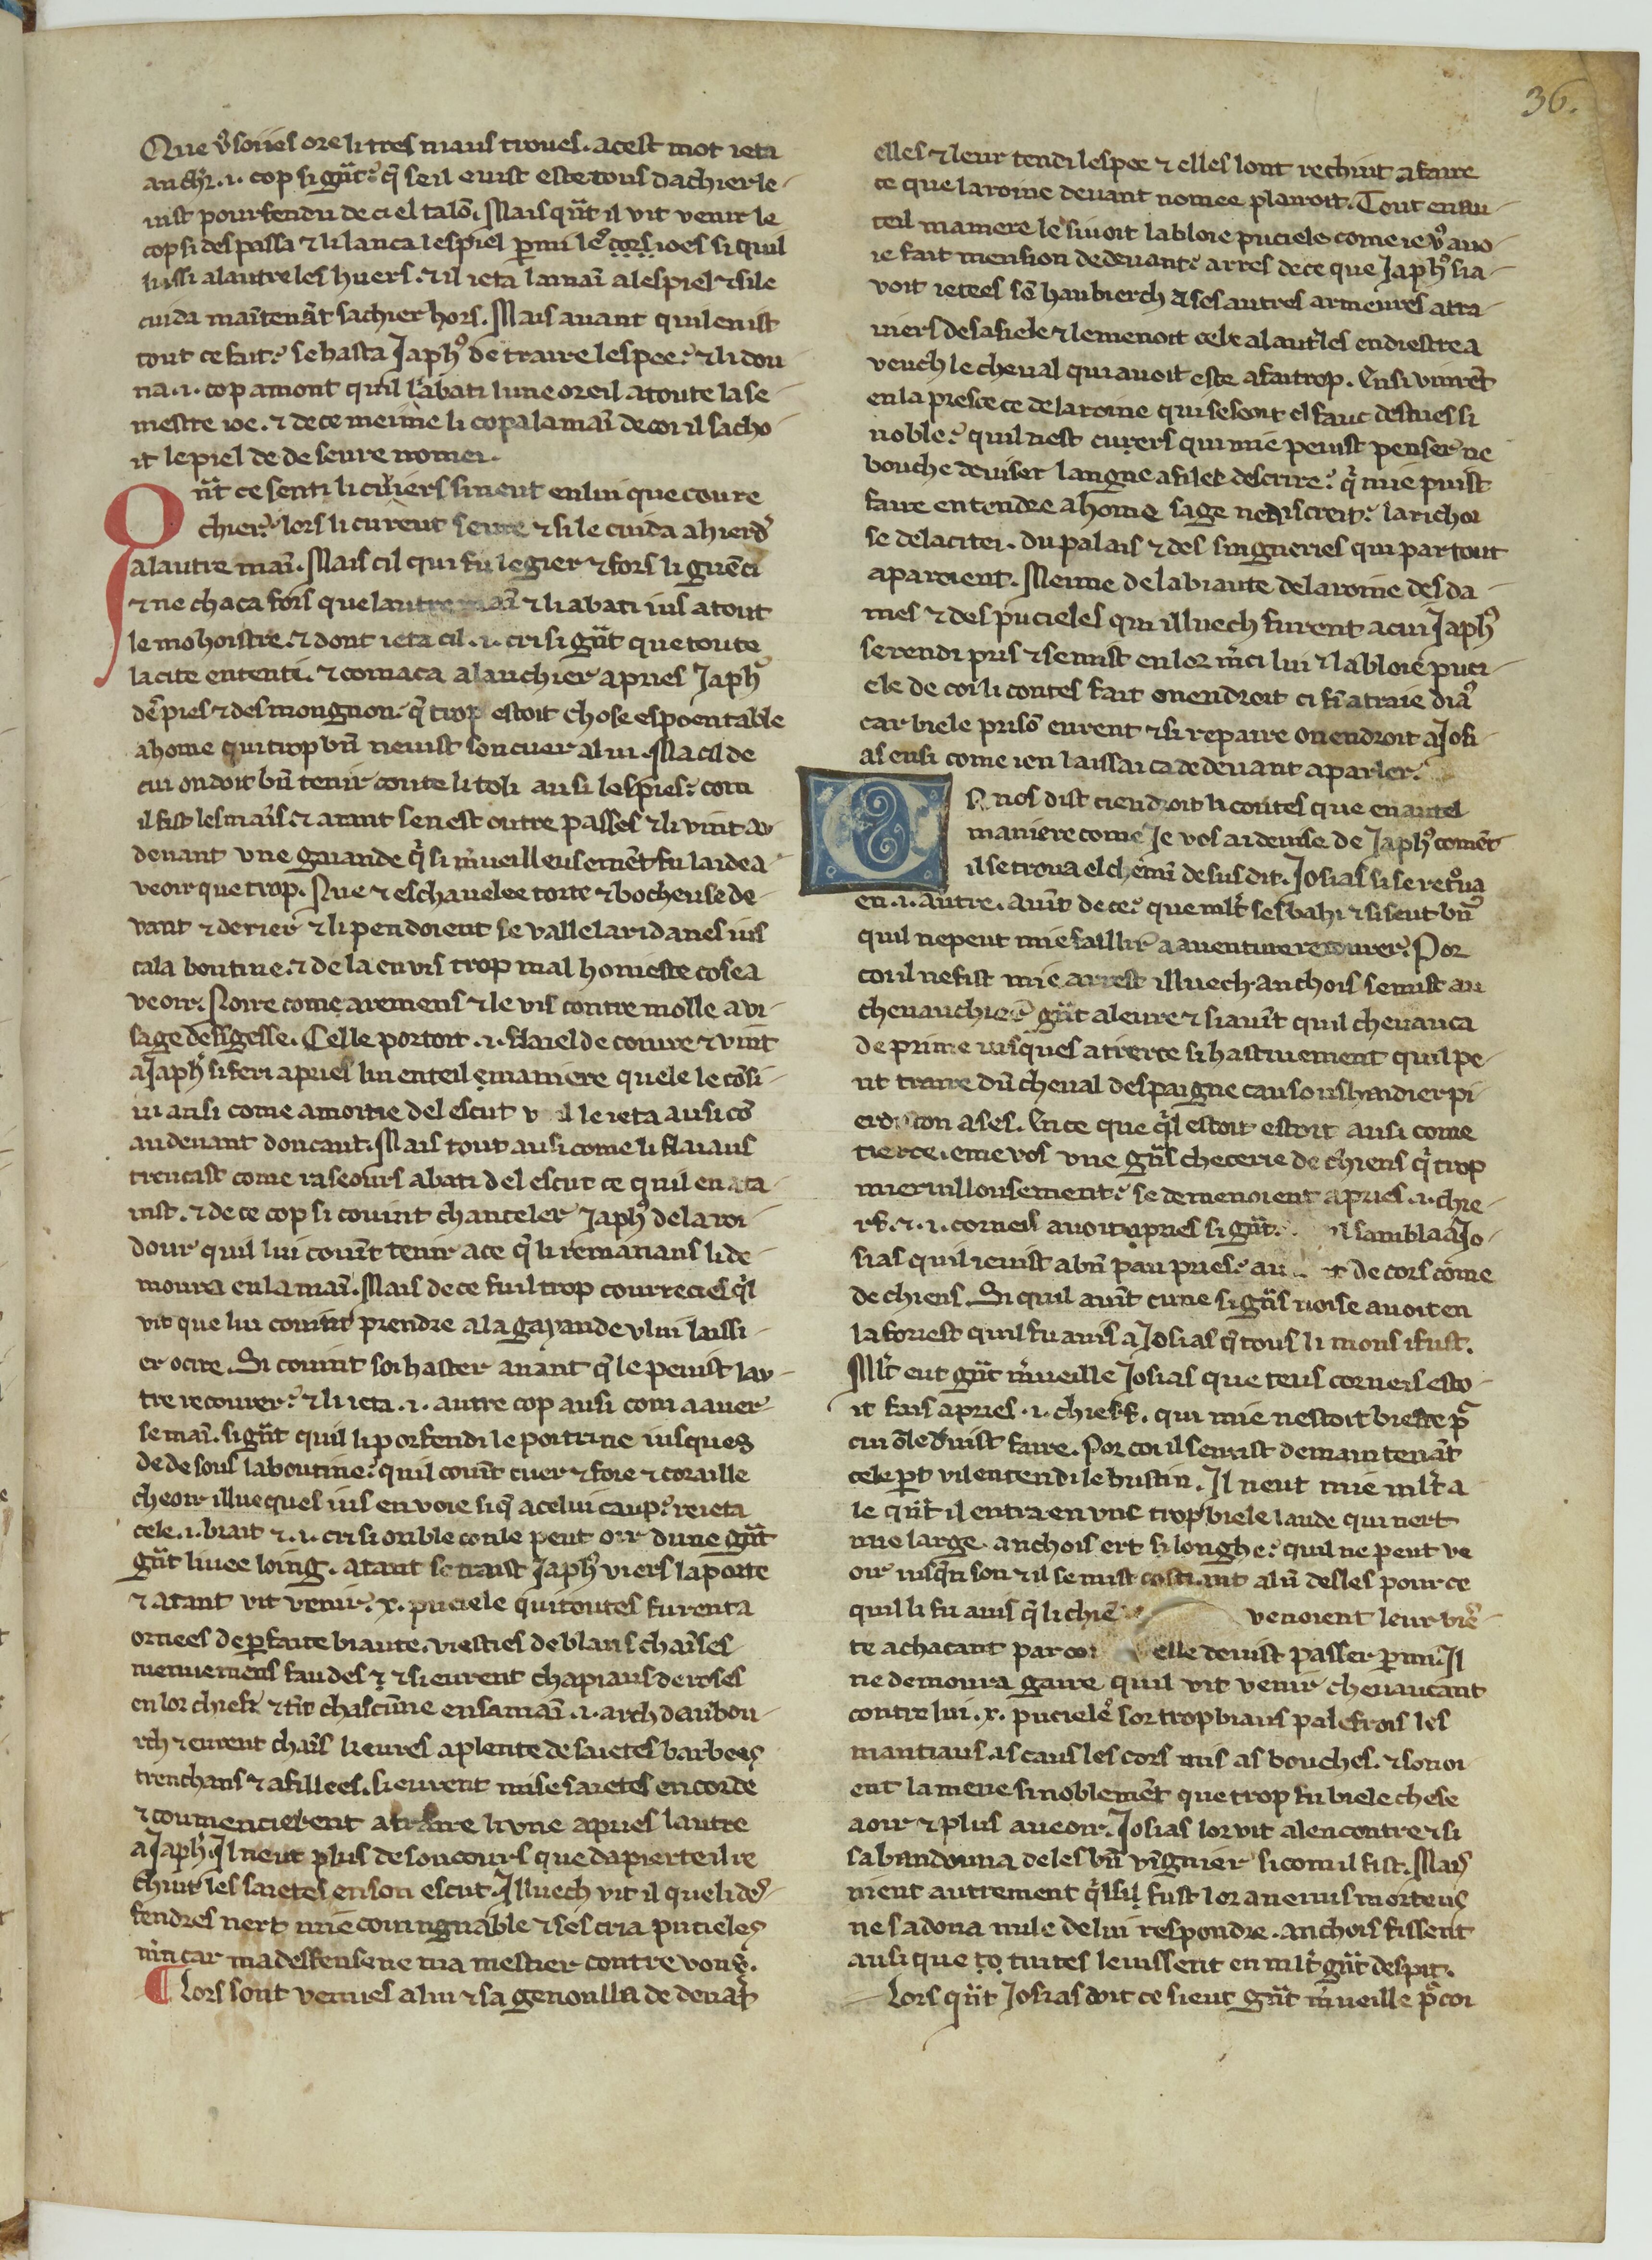 36.
Que vͦ soiies ore li tres maus troues. a cest mot ieta
anchr̃. i. cop si gñt? q̃ se il euist este tous dachier le
uist pourfendu de ci el talõ. Mais qñt il vit venir le
cop si des passa ⁊ li lanca lespiel p̃mi les cors ioes si quil
lussi al autre les huers. ⁊ il ieta la maĩ a lespiel ⁊ si le
cuida maĩtenãt sachier hors. Mais auant quil euist
tout ce fait? se hasta Japhꝰ de traire lespee? ⁊ li don
na. i. cop amont quil labati lune oreil a toute la se
nestre ioe. ⁊ de ce meime li copa la maĩ de coi il sacho
it lepiel de deseure nomei.
Qñt ce senti li cuuiers si neut en lui que coure
chier? lors li curent seure ⁊ si le cuida ahierdr̃
a lautre maĩ. Mais cil qui fu legier ⁊ fors li guẽci
⁊ ne chaca fors que lautre maĩ ⁊ li abati ius a tout
le mohoistre. ⁊ dont ieta cil .i. cri si gñt que toute
la cite ententi. ⁊ comaca a lanchier apries Japhꝰ
des pies ⁊ des mongnon. q̃ trop estoit chose espoentable
a home qui trop bñ neuist son cuer a lui. Mais cil de
cui on doit bñ tenir conte li toli ausi les pies? com
il fist les maĩs. ⁊ atant sen est outre passes ⁊ li vint au
deuant vne gaiande q̃ si m̃ueilleusemẽt fu laide a
veoir que trop. Nue ⁊ escheuelee torte ⁊ bocheuse de
vant ⁊ derier ⁊ li pendoient se valle laridanes ius
ca la boutine. ⁊ de la en vis trop mal honieste cose a
veoir. Noire come aremens ⁊ le vis contre molle a vi
sage de singesse. Celle portoit .i. flaiel de coiure ⁊ vint
a Japhꝰ si feri apries lui en teil e maniere quele le cõsi
ui ausi come a moitie del escut v il le ieta ausi cõ
au deuant doncant. Mais tout ausi come li flaiaus
trencast come raseours abati del escut ce quil en ata
inst. ⁊ de ce cop si couint chanceler Japhꝰ de la roi
dour quil lui couĩt tenir a ce q̃ li remanans li de
moura en la maĩ. Mais de ce fu il trop courrecies q̃l
vit que lui couint prendre a la gayande v lui laissi
er ocire. Si couint soi haster auant q̃ le peuist lau
tre recourer? ⁊ li ieta .i. autre cop ausi com a auer
se maĩ. si gñt quil li porfendi le poitrine iusques
de desous la boutine? quil couĩt cuer ⁊ foie ⁊ coraille
cheoir illueques ius en voie si q̃ a celui caup? reieta
cele .i. brait ⁊ .i. cri si orible con le peut oir dune gñt
gñt liuee loing. atant se traist Japhꝰ viers la porte
⁊ atant vit venir? x. puciele qui toutes furent a
ornees de p̃faite biaute. viesties de blans chaĩses
menuemens faudes ⁊ ⁊ si eurent chapiaus de roses
en lor chief. ⁊ tĩt chascũne en sa maĩ .i. arch daubou
rch ⁊ eurent chaĩs lieures a plente de saietes barbees
trenchans ⁊ afillees. si eurent mise saietes en corde
⁊ coumencierent a traire li vne apries lautre
a Japhꝰ. Il neut plus de soucours que dapierteil re
chiut les saietes en son escut. Illuech vit il que li des
fendres nert mie couingnable ⁊ ses cria pucieles
mĩ car ma deffense ne ma mestier contre vous.
¶ Lors sont venues a lui ⁊ sa genoulla de deuãt
elles ⁊ leur tendi lespee ⁊ elles lont rechiut a faire
ce que la roine deuant nomee plairoit. Tout en au
teil maniere le siuoit la bloie puciele come ie vͦ auo
ie fait mension de deuant? arres de ce que Japhꝰ sa
voit ietees sẽ haubierch ⁊ ses autres armeures atra
uiers de sa siele ⁊ le menoit cele a lautr̃les en diestre a
veuch le cheual qui auoit este afaitrop. Ensi vinrẽt
en la presce ce de la roine qui se seoit el fauc destues si
noble? quil nest cuers qui mie peuist penser ne
bouche deuiser langne afilee descrire? q̃ mie puist
faire entendre a home sage ne discreit? la richoi
se de la citei. du palais ⁊ des singneries qui par tout
aparoient. Meime de la biaute de la roine des da
mes ⁊ des pucieles qui illuech furent a cui Japhꝰ
se rendi pris ⁊ se mist en lor m̃ci lui ⁊ la bloie puci
ele de coi li contes fait onendroit ci fĩ a traie diaꝰ
car biele prisõ eurent ⁊ si repaire onendroit a Josi
as ensi come ien laissai ca de deuant a parler.
Si nos dist ciendroit li contes que en autel
maniere come Je vos ai deuise de Japhꝰ comẽt
il se troua el chemĩ desus dit. Josias si se retͦua
en .i. autre. auĩt de ce? que ml̃t sesbahi ⁊ si seut bñ
quil nepeut mie faillir a auenture recourer. Por
coi il ne fist mie arrest illuech anchois se mist au
cheuauchier gñt aleure ⁊ si auĩt quil cheuauca
de prime iusques a tierce si hastiuement quil pe
ut traire dũ cheual despaigne
 ases. En ce que q̃l estoit estoit ausi come
tierce. eme vos vne gñs checerie de chiens q̃ trop
mieruillousement? se demenoient apries .i. chie
rf. ⁊ .i. corneis auoit apries si gñt. il sambla a Jo
sias quil ieuist a bñ pau pries? au de cors come
de chiens. Si quil auĩt cune si gñs noise auoit en
la foriest quil fu auis a Josias q̃ tous li mons i fust.
Ml̃t eut gñt m̃ueille Josias que teus corneis esto
it fais apries .i. chierf. qui mie nestoit bieste p̃
cui õ le deuist faire. Por coi il se mist demaintenãt
cele p̃t v il entendi le hustin. Il neut mie ml̃t a
le qñt il entra en vne trop biele lande qui nert
mie large. anchois ert si longhe? quil ne peut ve
oir iusq̃n son ⁊ il se mist costiant a lũ des les pour ce
quil li fu auis q̃ li chiẽ venoient leur vie
te achacant par coi elle deuist passer p̃mi. Il
ne demoura gaire quil vit venir cheuaucant
contre lui .x. pucieles sor trop biaus palefrois les
mantiaus as caus les cors mis as bouches. ⁊ sonoi
ent la meue si noblemẽt que trop fu biele chose
a oir ⁊ plus a ueoir. Josias lor vit a lencontre ⁊ si
sabandouna deles bñ vĩgnier si com il fist. Mais
nient autrement q̃ sil fust lor anemis morteus
ne sadona nule de lui respondre. anchois fissent
ausi que to tuites leuissent en ml̃t gñt despit.
Lors qñt Josias voit ce si eut gñt m̃ueille p̃ coi